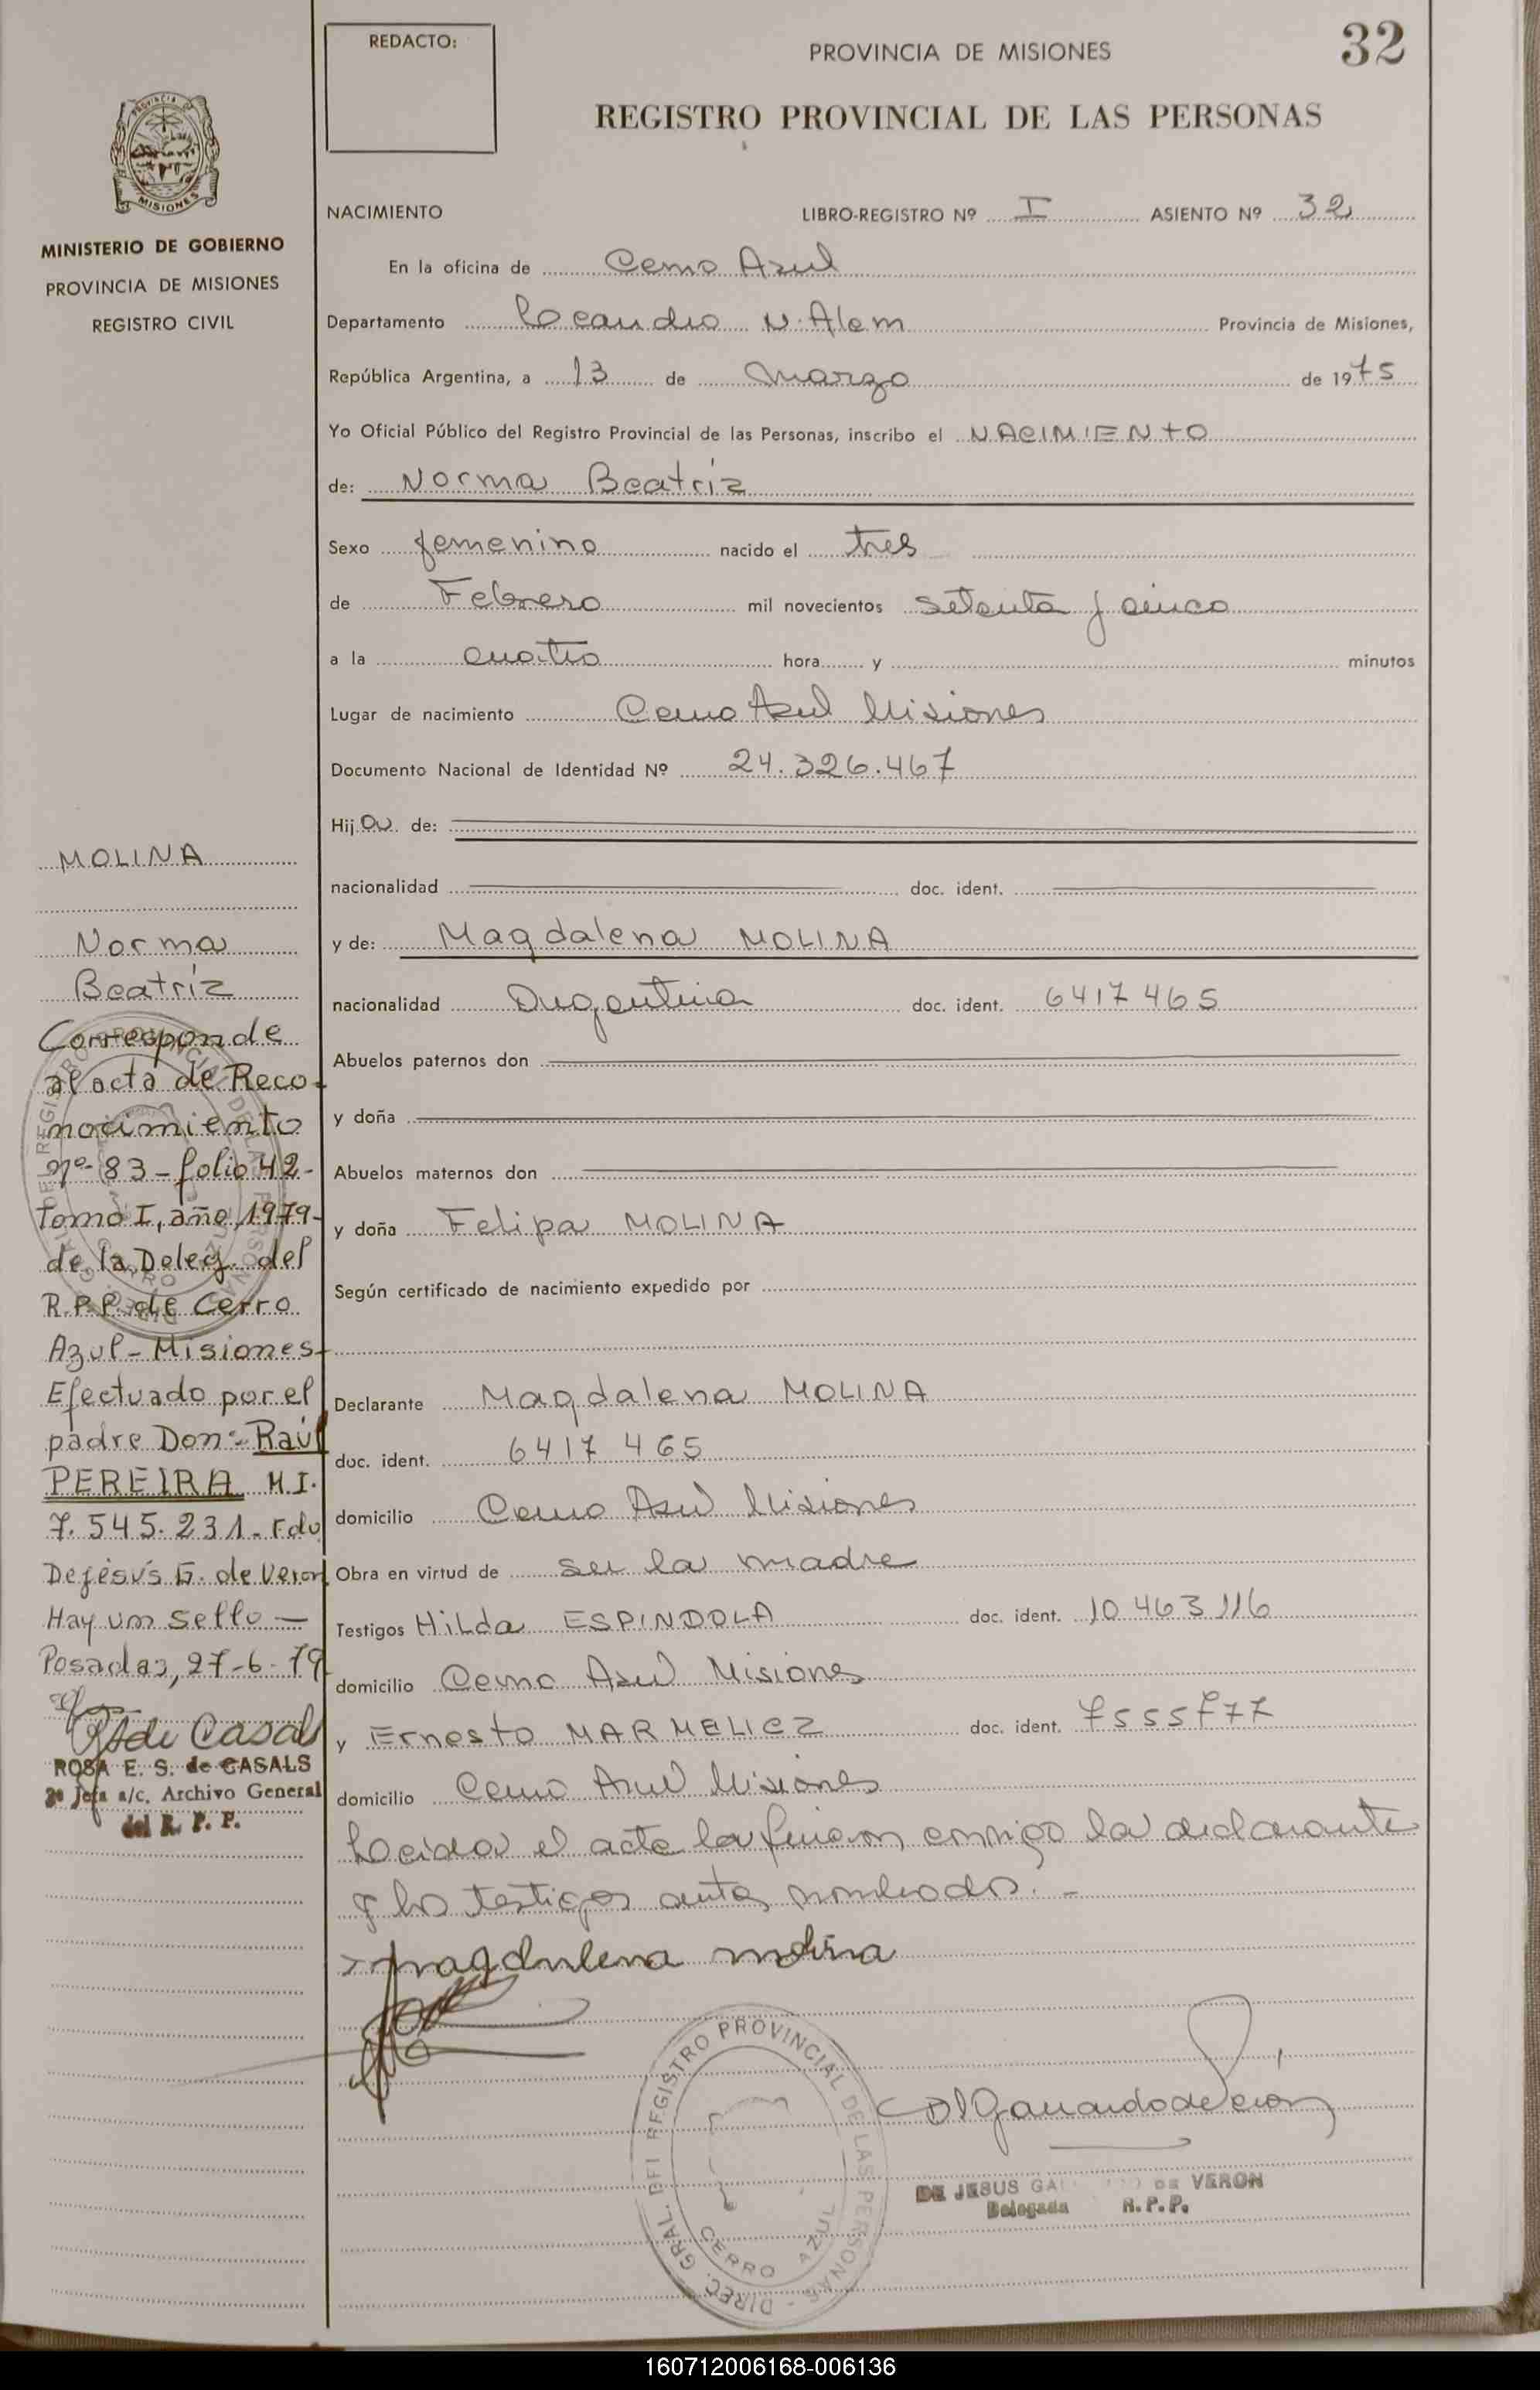 REDACTO:
PROVINCIA DE MISIONES
32
REGISTRO PROVINCIAL DE LAS PERSONAS
PROVINCIA DE
MISIONES
MINISTERIO DE GOBIERNO
PROVINCIA DE MISIONES
REGISTRO CIVIL
NACIMIENTO LIBRO-REGISTRO Nº I ASIENTO Nº 32
En la oficina de Cerro Azul
Departamento Leandro N. Alem Provincia de Misiones,
República Argentina, a 13 de Marzo de 1975
Yo Oficial Público del Registro Provincial de las Personas, inscribo el NACIMIENTO
de: Norma Beatríz
Sexo femenino nacido el tres
de Febrero mil novecientos setenta y cinco
a la cuatro hora y minutos
Lugar de nacimiento Cerro Azul Misiones
Documento Nacional de Identidad Nº 24.326.467
Hija de:
nacionalidad doc. ident.
y de: Magdalena MOLINA
nacionalidad Argentina doc. ident. 6417465
Abuelos paternos don
y doña
Abuelos maternos don
y doña Felipa MOLINA
Según certificado de nacimiento expedido por
Declarante Magdalena MOLINA
doc. ident. 6417 465
domicilio Cerro Azul Misiones
Obra en virtud de ser la madre
Testigos Hilda ESPINDOLA doc. ident. 10 463 116
domicilio Cerro Azul Misiones
y Ernesto MARMELICZ doc. ident.
domicilio Cerro Azul Misiones
Leída el acta la firman conmigo la declarante
y los testigos antes nombrados. -
magdalena molina
MOLINA
Norma
Beatríz
Corresponde
al acta de Reco-
nocimiento
nº 83 - folio 42-
Tomo I, año 1979-
de la Deleg. del
R.P.P. de Cerro
Azul - Misiones-
Efectuado por el
padre Don: Raúl
PEREIRA M.I.
7.545.231. Fdo
Dejesús G. de Veron
Hay un sello -
Posadas, 27-6-79
R S de Casals
ROSA E. S. de CASALS
2ª Jefa a/c. Archivo General
del R. P. P.
DIREC. GRAL. DEL REGISTRO PROVINCIAL DE LAS PERSONAS -
CERRO AZUL
DE JESUS GA DE VERON
Delegada R.P.P.
160712006168-006136